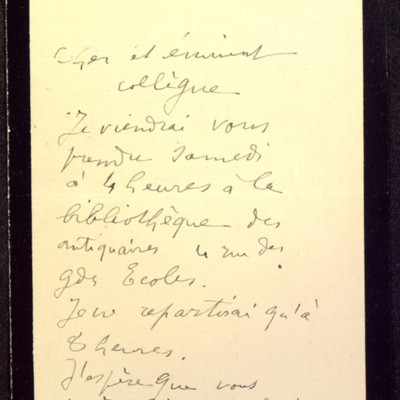 Cher et éminent
collègue
Je viendrai vous
prendre samedi
à 4 heures à la
bibliothèque des
antiquaires 4 rue des
gdes Ecoles.
Je ne repartirai qu'à
8 heures.
J'espère que vous